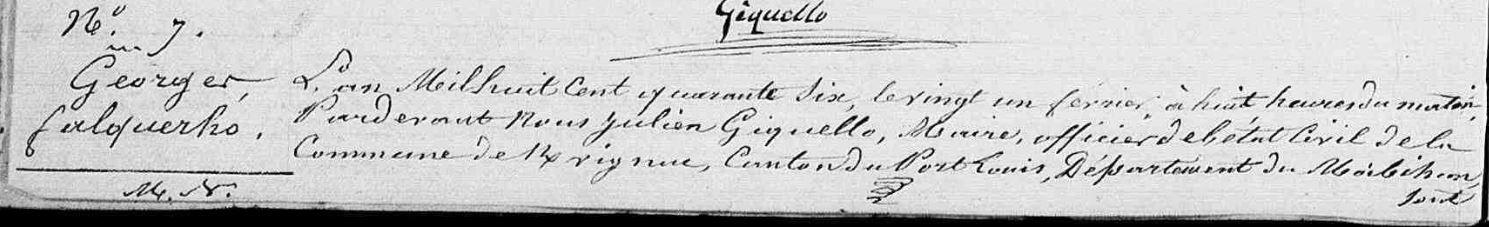 Giquello
N.° 7.
Georges,
falquerho.
M. N.
L'an Mil huit Cent quarante Six, le vingt un février, à huit heures du matin,
Pardevant Nous Julien Giquello, Maire, officier de l'état Civil de la
Commune de Kvignac, Canton du Port Louis, Département du Morbihan,
Sont